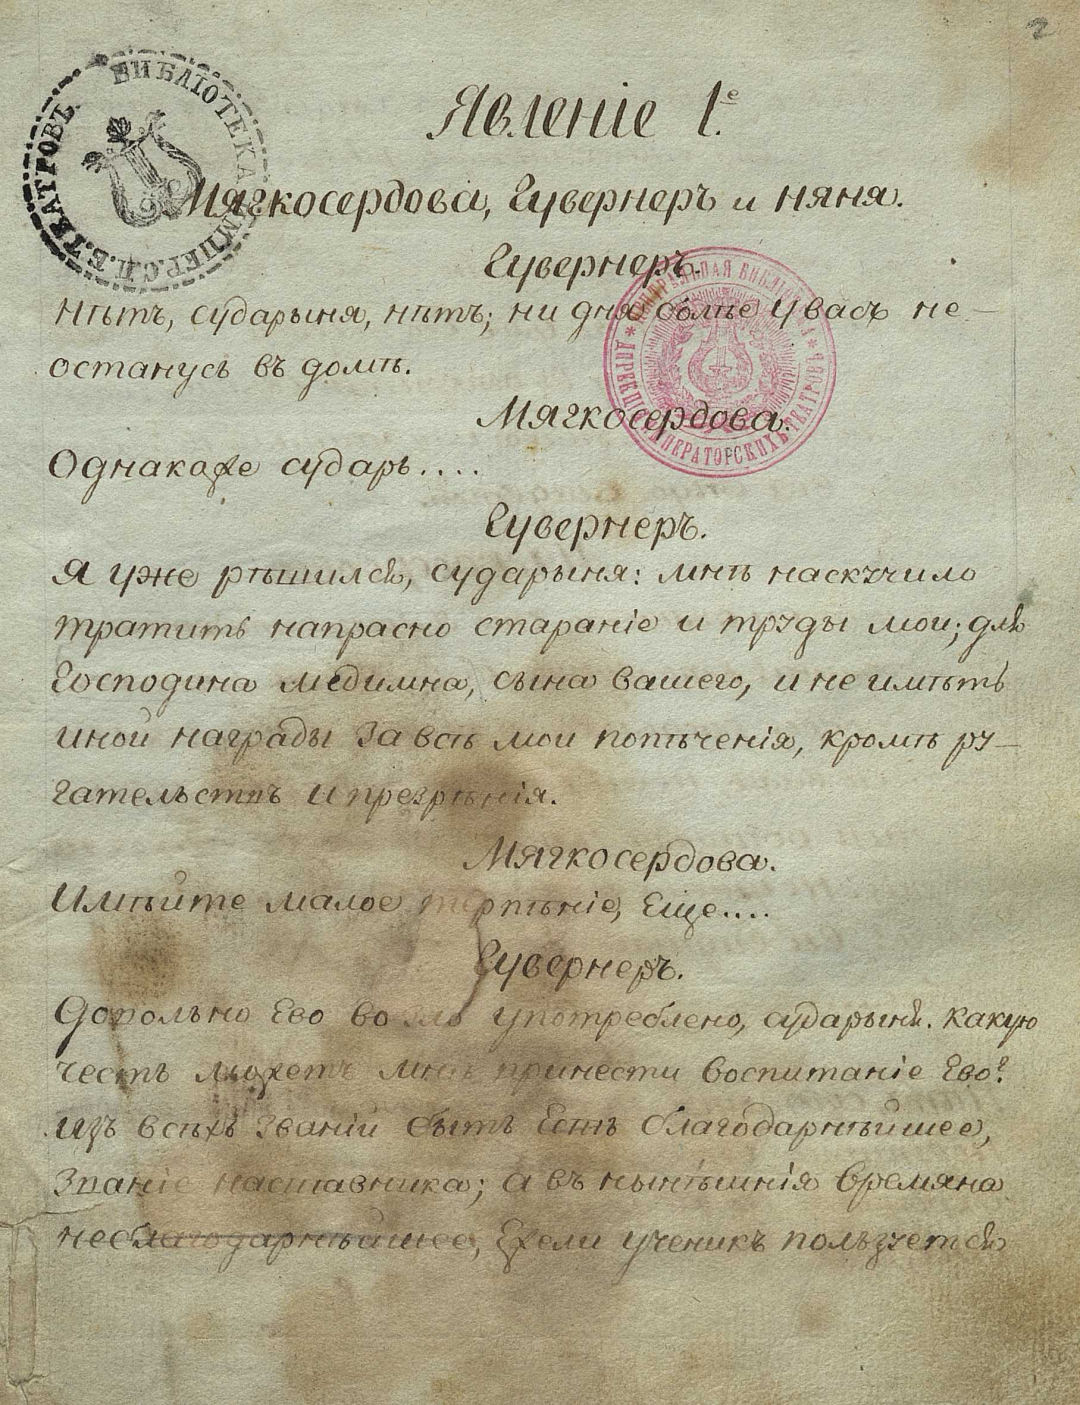 2
БИБЛIОТЕКА ИМПЕР. С.П.Б. ТЕАТРОВЪ
Явленiе 1.е
Мягкосердова, Гувернеръ и няня.
Гувернеръ.
ЦЕНТРАЛЬНАЯ БИБЛIОТЕКА * ДИРЕКЦIИ ИМПЕРАТОРСКИХЪ ТЕАТРОВЪ *
Нѣтъ, сударыня, нѣтъ; ни дня болѣе у васъ не-
останусь въ домѣ.
Мягкосердова.
Однакоже сударь....
Гувернеръ.
Я уже рѣшился, сударыня: мнѣ наскучило
тратить напрасно старанiе и труды мои; для
Господина Медимна, сына вашего, и не имѣть
иной награды за всѣ мои попѣченiя, кромѣ ру-
гательствъ и презрѣнiя.
Мягкосердова.
Имѣйте малое терпѣнiе, Еще....
Гувернеръ.
Довольно Ево во зло употреблено, сударыня. какую
честь можетъ мнѣ принести воспитанiе Ево?
изъ всѣхъ званiй быть Есть благодарнѣйшее,
Званiе наставника; а въ нынѣшнiя времяна
неблагодарнѣйшее, Ежели ученикъ пользуется